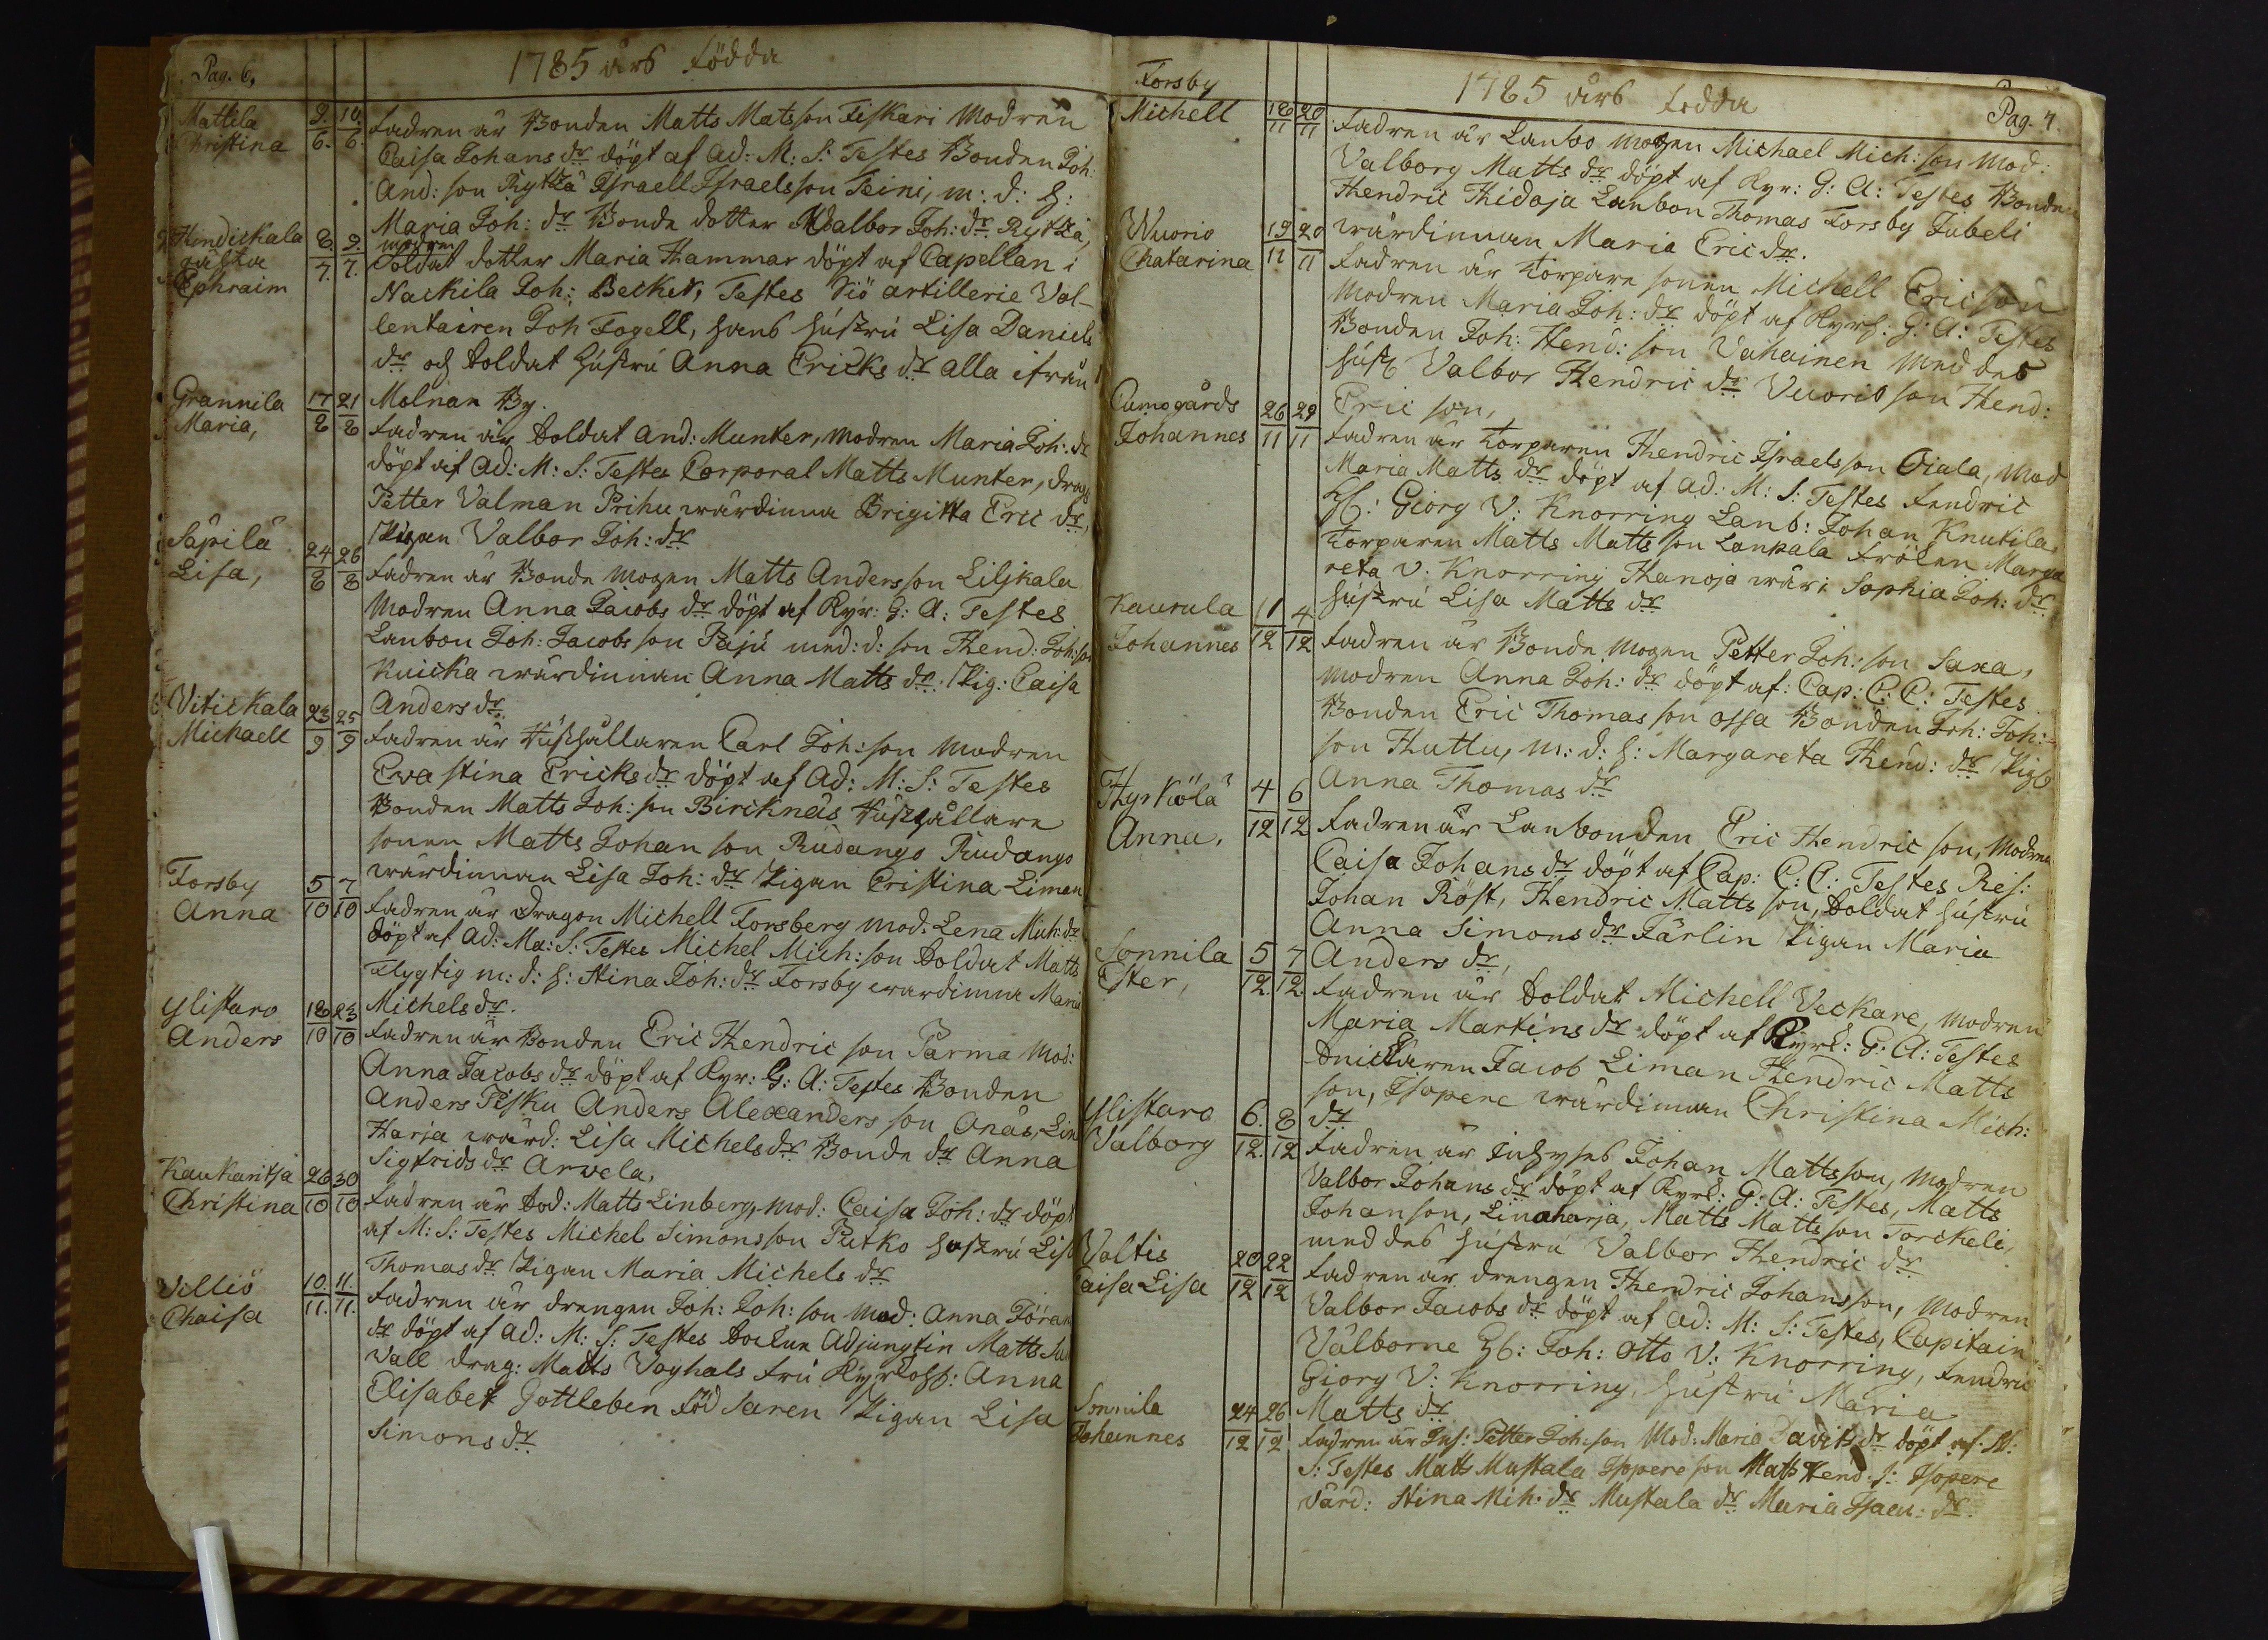 Pag. 6.
1785 års födda
Mattila 9. 10. fadren är Bonden Matts Matsson Fiskari Modren
Christina 6. 6. Caisa Johans dr döpt af Ad: M: S: Testes Bonden Joh:
And: son Rytkä Israell Israelsson Teini, m: d: h:
Maria Joh: dr Bonde dotter Walbor Joh: dr Rytkä,
Hendickala 8. 9. modren Soldat dotter Maria Hammar döpt af Capellan i
gästa 7. 7.
Ephraim Nackila Joh: Becker, Testes Siö artillerie Vol-
lentairen Joh Fogell, hans hústrú Lisa Daniels
dr och Soldat hústrú Anna Ericks dr alla ifrån
Molnan By.
Grannila 17 21
Maria, 8 8 fadren är Soldat And: Munter, modren Maria Joh: dr
döpt af Ad: M: S: Testes Corporal Matts Munter, drag
Petter Valman Prihu wärdinna Brigitta Eric dr,
Pigan Valbor Joh: dr
Säpilä 24 26
Lisa, 8 8 fadren är Bonde mogen Matts Andersson Liljkala
Modren Anna Jacobs dr döpt af Kyr: G: A: Testes
Lanbon Joh: Jacobs son Pajú med: d: son Hend: Joh: son
Kuicka wärdinnan Anna Matts dr. Pig: Caisa
Anders dr.
Vitickala 23 25
Michaell 9 9 fadren är Húshållaren Carl Joh: son modren
Eva Stina Ericks dr döpt af Ad: M: S: Testes
Bonden Matts Joh: son Bircknäs Húshållare
sonen Matts Johan son Rúdango Rudango
wärdinnan Lisa Joh: dr Pigan Cristina Liman
Forsby 5 7
Anna 10 10 fadren är Dragon Michell Forsberg mod: Lena Mich: dr
döpt af Ad: Ma: S: Testes Michel Mich: son Soldat Matts
Flygtig m: d: h: Stina Joh: dr Forsby wärdinna Maria
Michels dr.
Ylistaro 18 23
Anders 10 10 fadren är Bonden Eric Hendric son Parma Mod:
Anna Jacobs dr döpt af Kyr: G: A: Testes Bonden
Anders Pisku Anders Alexanders son Anäs, Lin
Harja wärd: Lisa Michels dr Bonde dr Anna
Sigfrids dr Arvela,
Kaukaritsa 26 30
Christina 10 10 fadren är Sod: Matts Linberg, mod: Caisa Joh: dr döpt
af M: S: Testes Michel Simonsson Putko hústrú Lisa
Thomas dr Pigan Maria Michels dr
Villiö 10. 11.
Chaisa 11. 11. fadren är drengen Joh: Joh: son mod: Anna Jöran
dr döpt af Ad: M: S: Testes Adjungtin Matts
Vall drag: Matts Voghals frú Anna
Elisabet Gottleben Föd saren Pigan Lisa
Simons dr
Forsby
1785 års fodda
Pag. 7.
Michell 18 20
11 11 fadren är Lanbo mogen Michael Mich: son Mod:
Valborg Matts dr döpt af Kyr: G: A: Testes Bonden
Hendric Hidoja Lanbon Thomas Forsby Jubeli
wärdinnan Maria Eric dr.
Wuorio 19 20
Chatarina 11 11 fadren är torpare sonen Michell Ericson
Modren Maria Joh: dr döpt af Kyrh: G: A: Testes
Bonden Joh: Hend: son Vahainen med des
húst Valbor Hendric dr Vuorio son Hend:
Eric son,
Cumogårds 26 29
Johannes 11 11 fadren är torparen Hendric Israelsson Oiala, Mod
Maria Matts dr döpt af Ad: M: S: Testes fendric
Hb: Giorg V: Knorring Lanb: Johan Knutila,
torparen Matts Matts son Lankala fröken Marga
reta v: Knorring Hanoja wär: Sophia Joh: dr
hústrú Lisa Matts dr
Kaurula 11 4
Johannes 12 12 fadren är Bonde mogen Petter Joh: son Saxa,
modren Anna Joh: dr döpt af: Cap: C: C: Testes
Bonden Eric Thomas son Ossa Bonden Joh: Joh:
son Huttu, m: d: h: Margareta Hend: dr Pig
Anna Thomas dr
Hyrkölä 4 6
Anna, 12 12 fadren är Lanbonden Eric Hendric son, modren
Caisa Johans dr döpt af Cap: C: C: Testes Res:
Johan Röst, Hendric Matts son, Soldat hústrú
Anna Simons dr Färlin Pigan Maria
Anders dr,
Sonnila 5 7
Ester, 12. 12. fadren är Soldat Michell Veckare, modren
Maria Martins dr döpt af Kyrk: G: A: Testes
Snickaren Jacob Liman Hendric Matts
son, Isopere wärdinnan Christina Mich:
dr
Ylistaro 6. 8
Valborg 12. 12 fadren är Inhyses Johan Mattsson, modren
Valbor Johans dr döpt af Kyrk: G: A: Testes, Matts
Johanson, Linaharja, Matts Mattsson Torckeli,
med des hústrú Valbor Hendric dr
Voltis 20 22
Caisa Lisa 12 12 fadren är drengen Hendric Johansson, modren
Valbor Jacobs dr döpt af Ad: M: S: Testes, Capitain
Välborne Hb: Joh: Otto V: Knorring, fendric
Giorg V: Knorring, hústrú Maria
Matts dr
Sonnila 24 26
Johannes 12 12 fadren är Inh: Petter Joh: son Mod: Maria Davids dr döpt af M:
S: Testes Matts Mustala Isopere son Matts Hend: s: Isopere
värd: Stina Mih: dr Mustala dr Maria Isacs: dr.